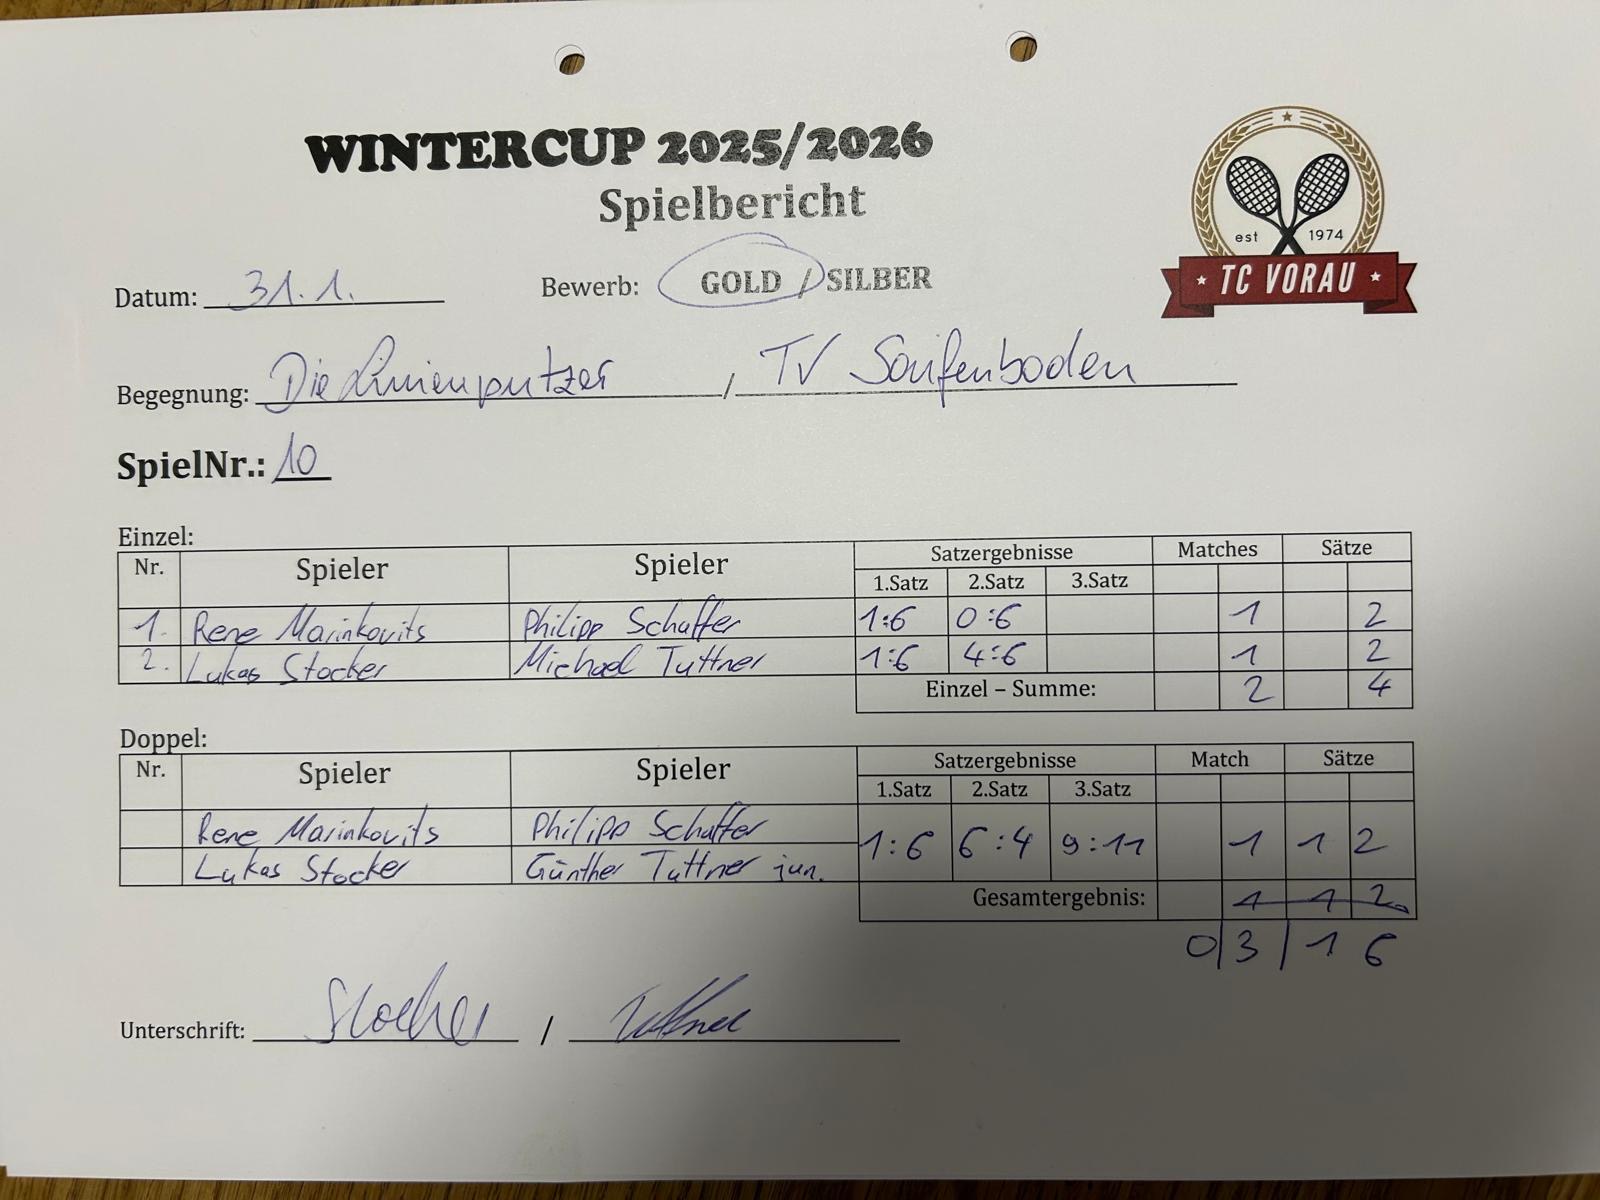 WINTERCUP 2025/2026
Spielbericht
est 1974
TC VORAU
Datum: 31.1. Bewerb: GOLD / SILBER
Begegnung: Die Linienputzer / TV Saifenboden
SpielNr.: 10
Einzel:
Nr. Spieler Spieler Satzergebnisse Matches Sätze
1.Satz 2.Satz 3.Satz
1. Rene Marinkovits Philipp Schaffer 1:6 0:6 1 2
2. Lukas Stocker Michael Tuttner 1:6 4:6 1 2
Einzel – Summe: 2 4
Doppel:
Nr. Spieler Spieler Satzergebnisse Match Sätze
1.Satz 2.Satz 3.Satz
Rene Marinkovits Philipp Schaffer 1:6 6:4 9:11 1 1 2
Lukas Stocker Günther Tuttner jun.
Gesamtergebnis: 1 1 2
0 | 3 | 1 6
Unterschrift: Stocker / Tuttner